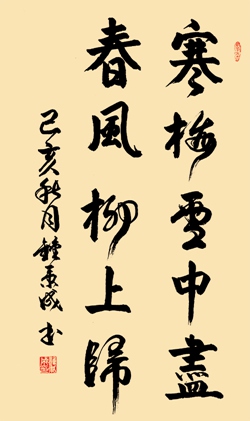 寒梅雪中盡
春風柳上歸
己亥秋月鐘東成书